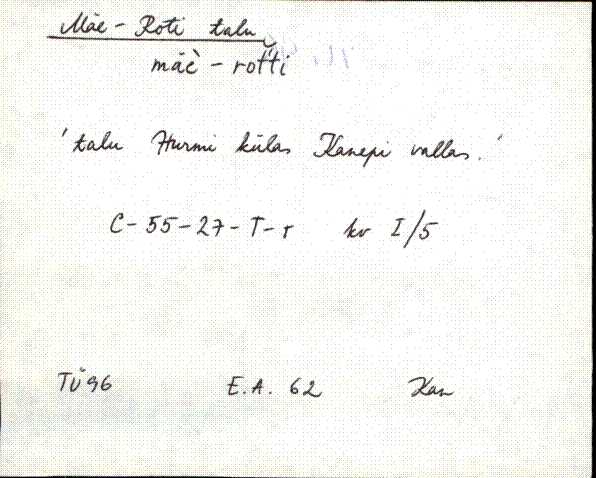 Mäe-Roti talu
mäè-rot̆ti
'talu Hurmi külas Kanepi vallas.'
C-55-27-T-r kv I/5
TÜ96 E.A. 62 Kan